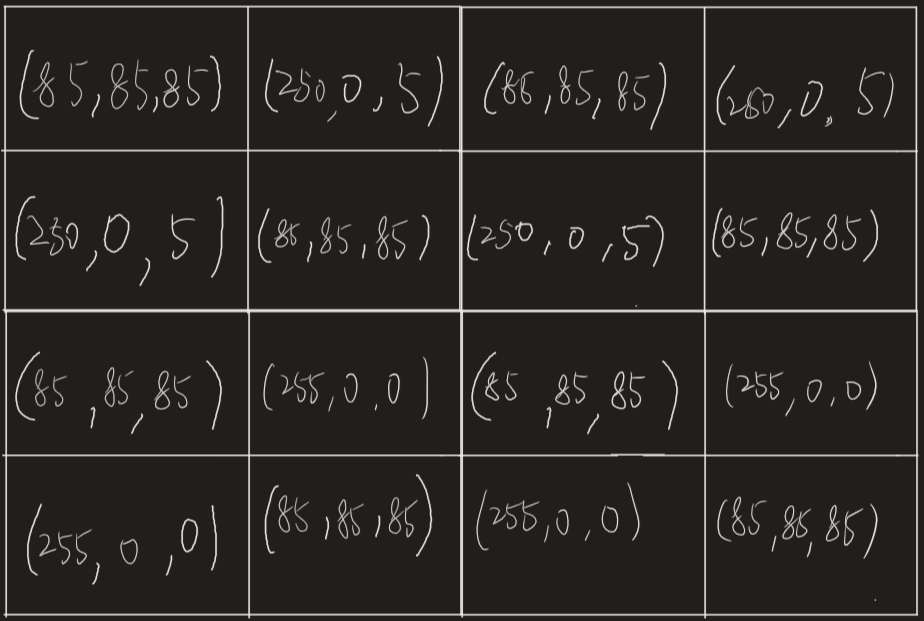 (85,85,85) (250,0,5) (85,85,85) (250,0,5)
(250,0,5) (85,85,85) (250,0,5) (85,85,85)
(85,85,85) (255,0,0) (85,85,85) (255,0,0)
(255,0,0) (85,85,85) (255,0,0) (85,85,85)